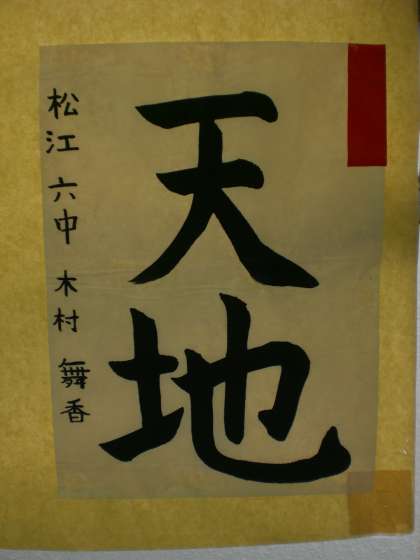 天地
松江六中 木村 舞香